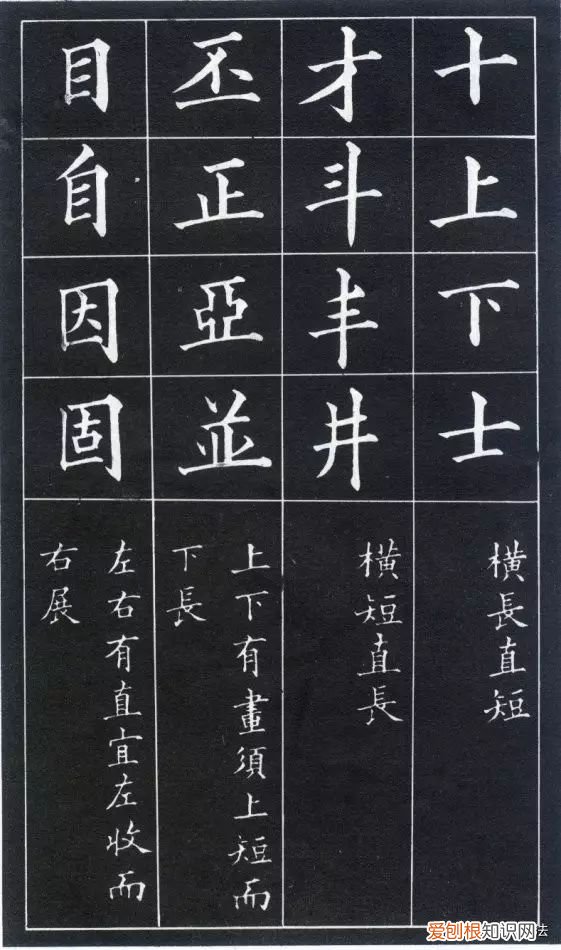 十上下士
橫長直短
才斗丰井
橫短直長
丕正亞並
上下有畫須上短而
下長
目自因固
左右有直宜左收而
右展
爱刨根知识网
法